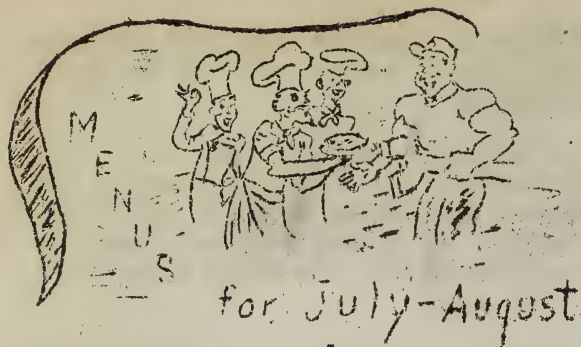 MENUS
for July-August